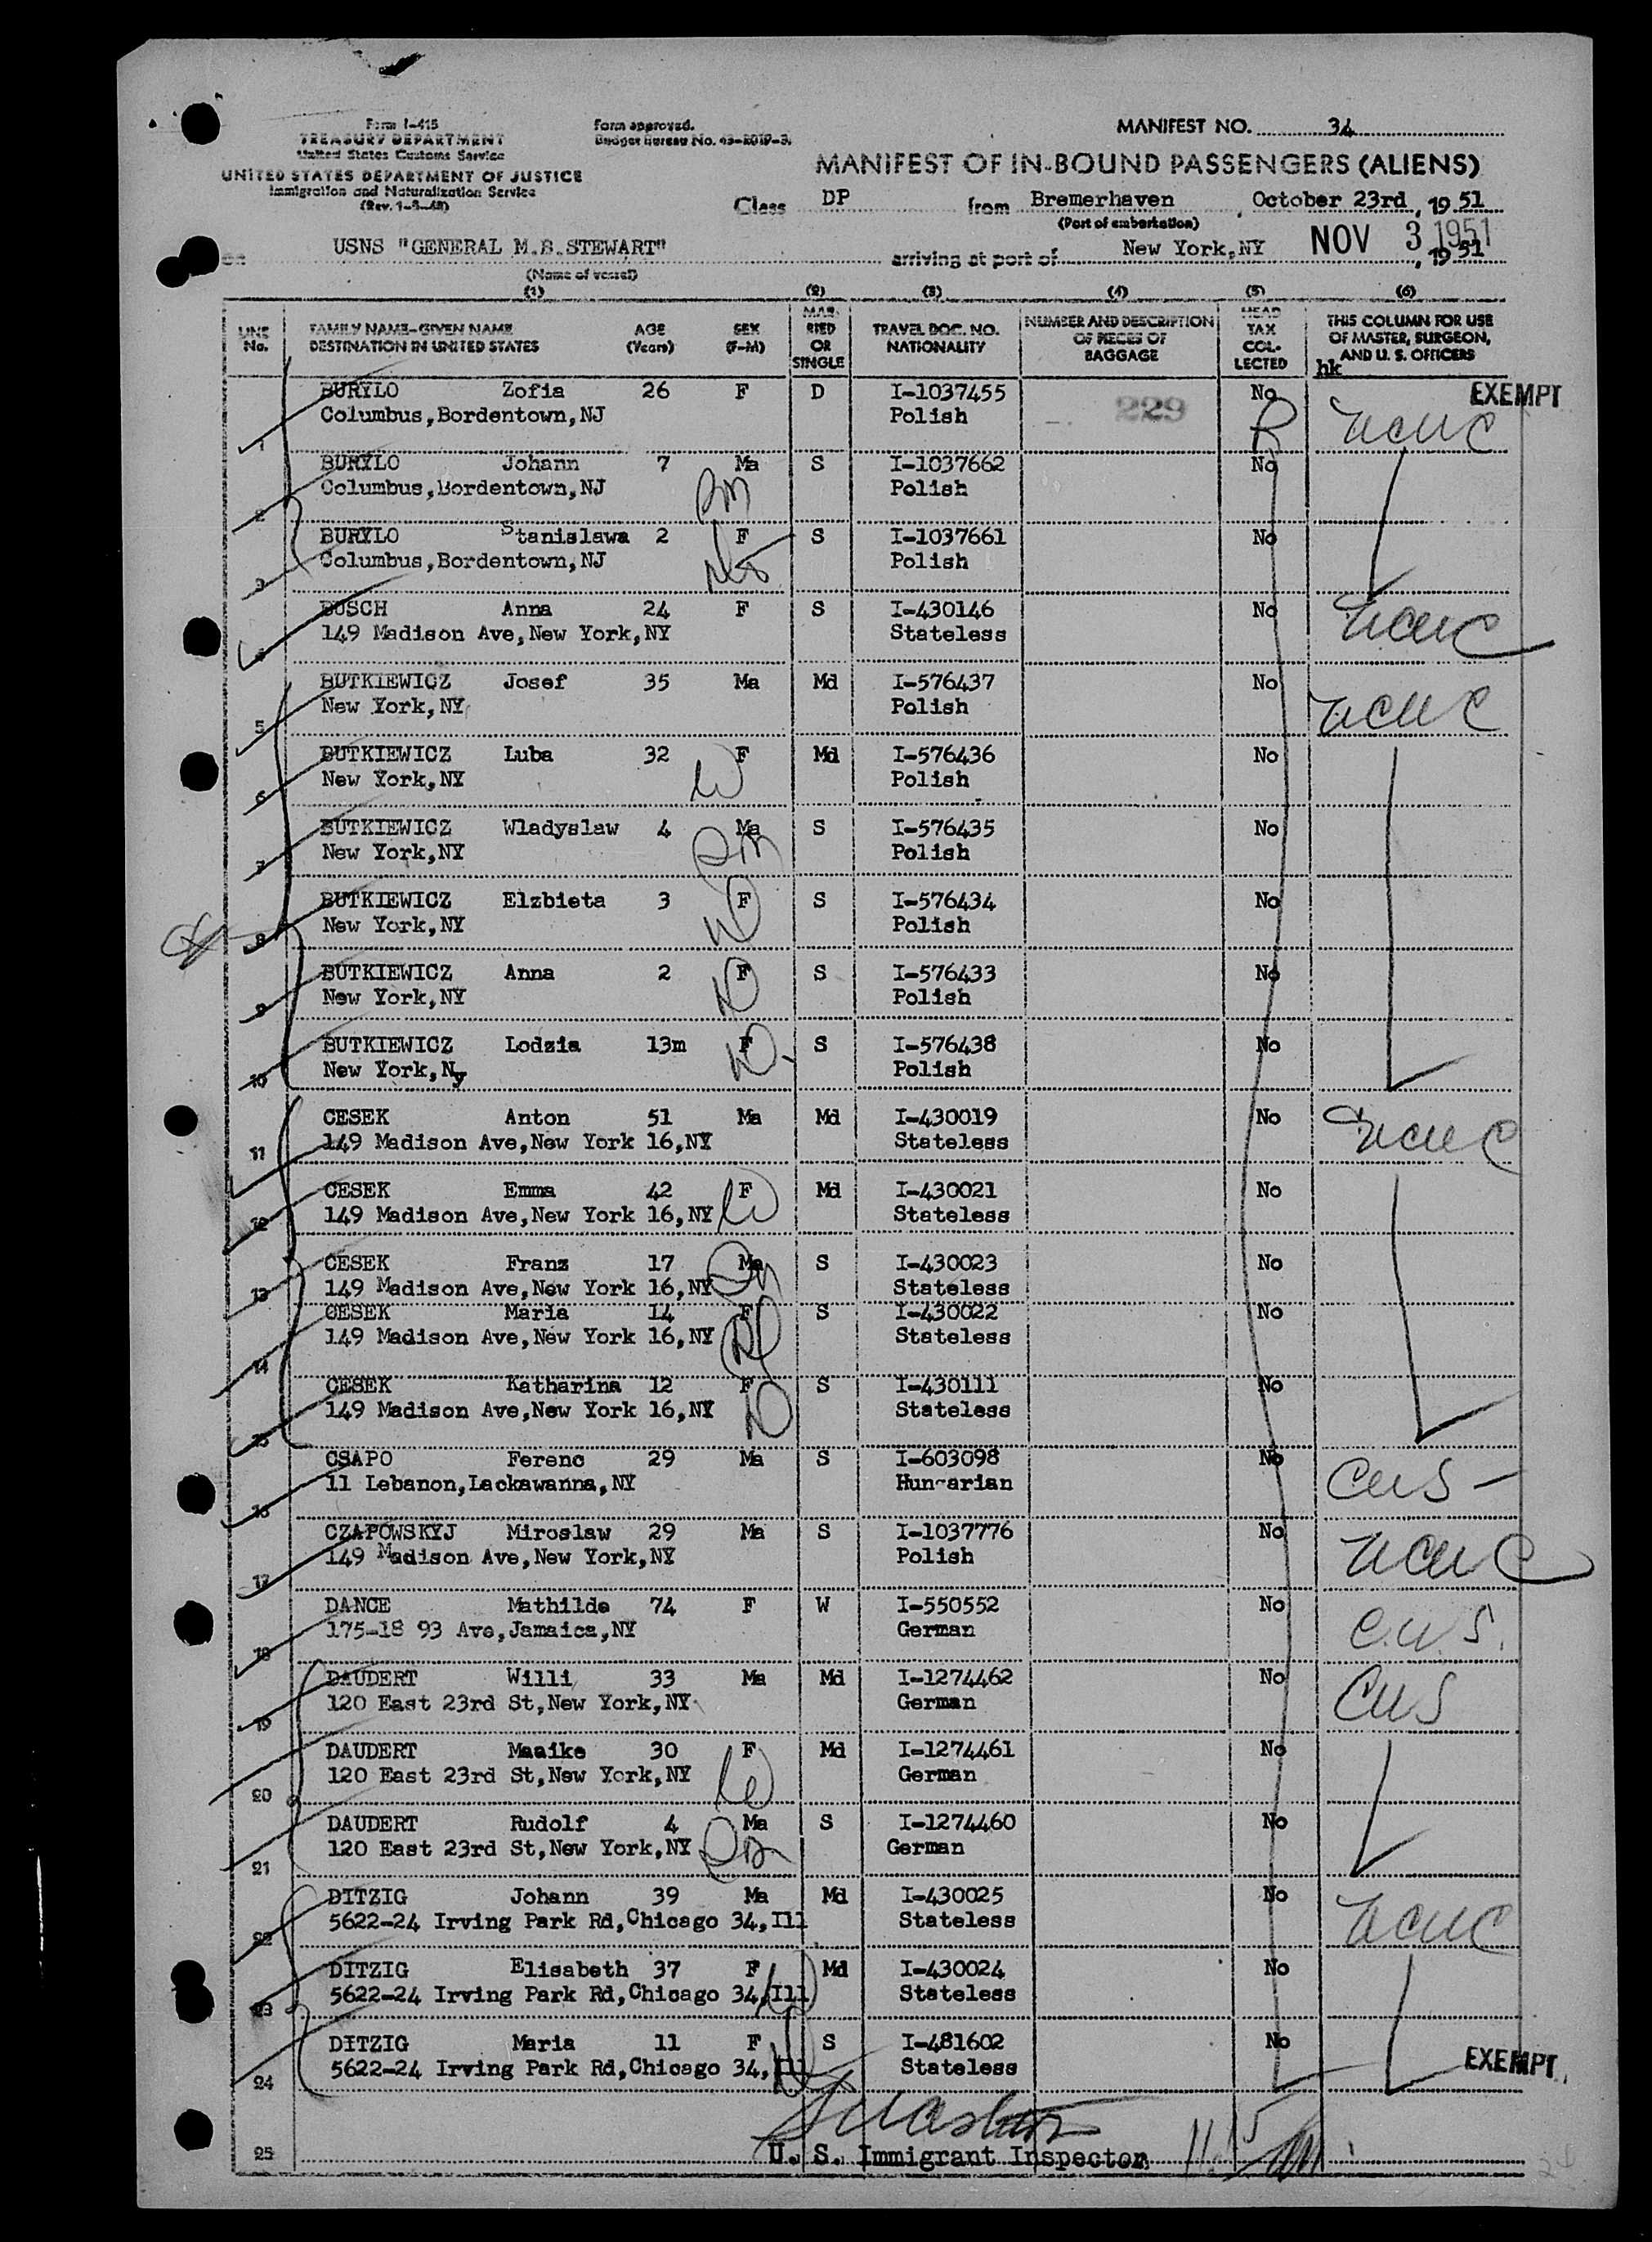 Form I-415
TREASURY DEPARTMENT
United States Customs Service
UNITED STATES DEPARTMENT OF JUSTICE
Immigration and Naturalization Service
(Rev. 1-3-48)
Form approved.
Budget Bureau No. 43-R019-3.
MANIFEST NO. 34
MANIFEST OF IN-BOUND PASSENGERS (ALIENS)
Class DP from Bremerhaven, October 23rd, 19 51
(Port of embarkation)
on USNS "GENERAL M.B.STEWART" arriving at port of New York,NY NOV 3 1951, 19 51
(Name of vessel)
(1) (2) (3) (4) (5) (6)
LINE No. FAMILY NAME-GIVEN NAME DESTINATION IN UNITED STATES AGE (Years) SEX (F-M) MARRIED OR SINGLE TRAVEL DOC. NO. NATIONALITY NUMBER AND DESCRIPTION OF PIECES OF BAGGAGE HEAD TAX COLLECTED THIS COLUMN FOR USE OF MASTER, SURGEON, AND U. S. OFFICERS
hk
BURYLO Zofia 26 F D I-1037455 No EXEMPT
1 Columbus,Bordentown,NJ Polish 229 NCWC
BURYLO Johann 7 Ma S I-1037662 No
2 Columbus,Bordentown,NJ Polish
BURYLO Stanislawa 2 F S I-1037661 No
3 Columbus,Bordentown,NJ Polish
BUSCH Anna 24 F S I-430146 No NCWC
4 149 Madison Ave,New York,NY Stateless
BUTKIEWICZ Josef 35 Ma Md I-576437 No NCWC
5 New York,NY Polish
BUTKIEWICZ Luba 32 F Md I-576436 No
6 New York,NY Polish
BUTKIEWICZ Wladyslaw 4 Ma S I-576435 No
7 New York,NY Polish
BUTKIEWICZ Elzbieta 3 F S I-576434 No
8 New York,NY Polish
BUTKIEWICZ Anna 2 F S I-576433 No
9 New York,NY Polish
BUTKIEWICZ Lodzia 13m F S I-576438 No
10 New York,Ny Polish
CESEK Anton 51 Ma Md I-430019 No NCWC
11 149 Madison Ave,New York 16,NY Stateless
CESEK Emma 42 F Md I-430021 No
12 149 Madison Ave,New York 16,NY Stateless
CESEK Franz 17 Ma S I-430023 No
13 149 Madison Ave,New York 16,NY Stateless
CESEK Maria 14 F S I-430022 No
14 149 Madison Ave,New York 16,NY Stateless
CESEK Katharina 12 F S I-430111 No
15 149 Madison Ave,New York 16,NY Stateless
CSAPO Ferenc 29 Ma S I-603098 No CWS
16 11 Lebanon,Lackawanna,NY Hungarian
CZAPOWSKYJ Miroslaw 29 Ma S I-1037776 No NCWC
17 149 Madison Ave,New York,NY Polish
DANCE Mathilde 74 F W I-550552 No C.W.S.
18 175-18 93 Ave,Jamaica,NY German
DAUDERT Willi 33 Ma Md I-1274462 No CWS
19 120 East 23rd St,New York,NY German
DAUDERT Maaike 30 F Md I-1274461 No
20 120 East 23rd St,New York,NY German
DAUDERT Rudolf 4 Ma S I-1274460 No
21 120 East 23rd St,New York,NY German
DITZIG Johann 39 Ma Md I-430025 No NCWC
22 5622-24 Irving Park Rd,Chicago 34,Ill Stateless
DITZIG Elisabeth 37 F Md I-430024 No
23 5622-24 Irving Park Rd,Chicago 34,Ill Stateless
DITZIG Maria 11 F S I-481602 No EXEMPT
24 5622-24 Irving Park Rd,Chicago 34,Ill Stateless
25 U. S. Immigrant Inspector